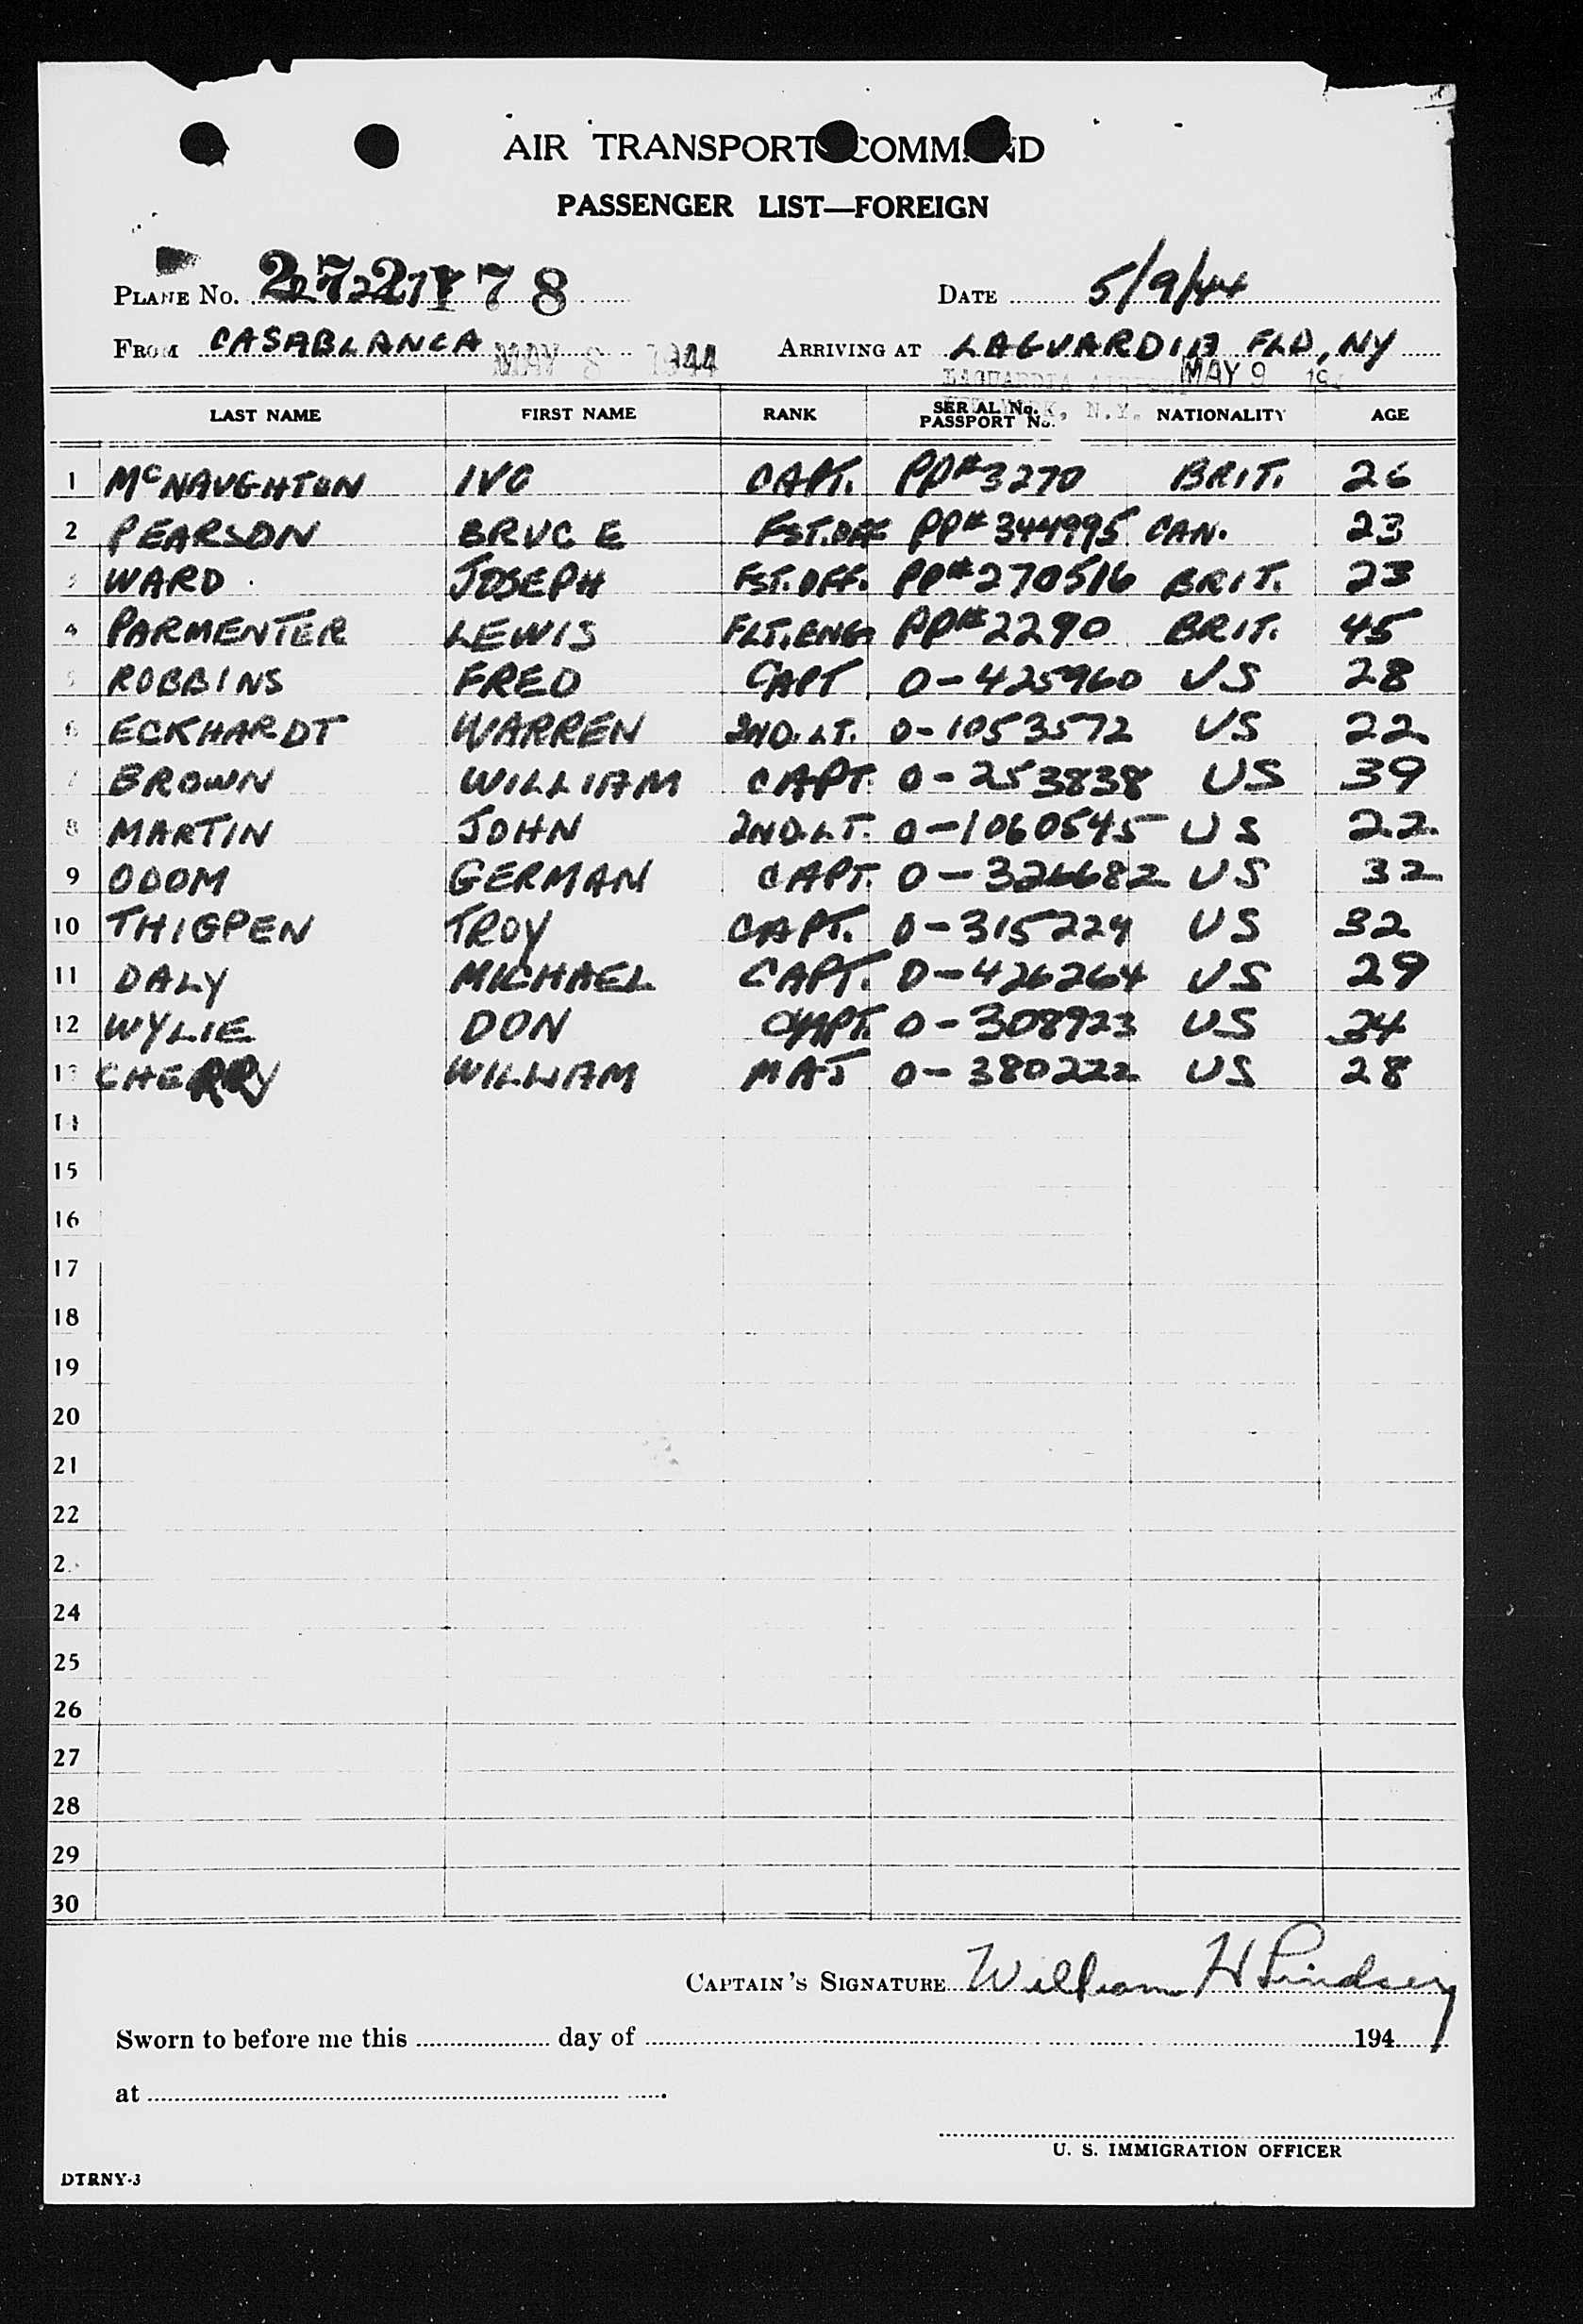 AIR TRANSPORT COMMAND
PASSENGER LIST—FOREIGN
PLANE No. 272178
DATE 5/9/44
FROM CASABLANCA ARRIVING AT LAGUARDIA FLD, NY
MAY 8 1944 LAGUARDIA AIRPORT MAY 9 194
N.Y.
LAST NAME FIRST NAME RANK SERIAL No. PASSPORT No. NATIONALITY AGE
1 McNAUGHTON IVO CAPT. PP#3270 BRIT. 26
2 PEARSON BRUCE FST.OFF PP#344995 CAN. 23
3 WARD JOSEPH FST.OFF. PP#270516 BRIT. 23
4 PARMENTER LEWIS FLT.ENG PP#2290 BRIT. 45
5 ROBBINS FRED CAPT O-425960 US 28
6 ECKHARDT WARREN 2ND.LT. O-1053572 US 22
7 BROWN WILLIAM CAPT. O-253838 US 39
8 MARTIN JOHN 2ND.LT. O-1060545 US 22
9 ODOM GERMAN CAPT. O-326682 US 32
10 THIGPEN TROY CAPT. O-315224 US 32
11 DALY MICHAEL CAPT. O-426264 US 29
12 WYLIE DON CAPT. O-308923 US 34
13 CHERRY WILLIAM MAJ O-380222 US 28
14
15
16
17
18
19
20
21
22
2
24
25
26
27
28
29
30
CAPTAIN'S SIGNATURE William H Lindsey
Sworn to before me this day of 194
at
U. S. IMMIGRATION OFFICER
DTRNY-3